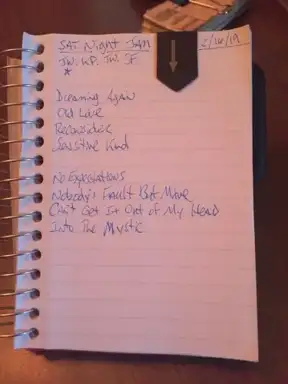 SAT Night JAM
JW. KP. TW. JF
*
Dreaming Again
Old Love
Reconsider
Sensitive Kind
No Expectations
Nobody's Fault But Mine
Can't Get It Out of My Head
Into The Mystic